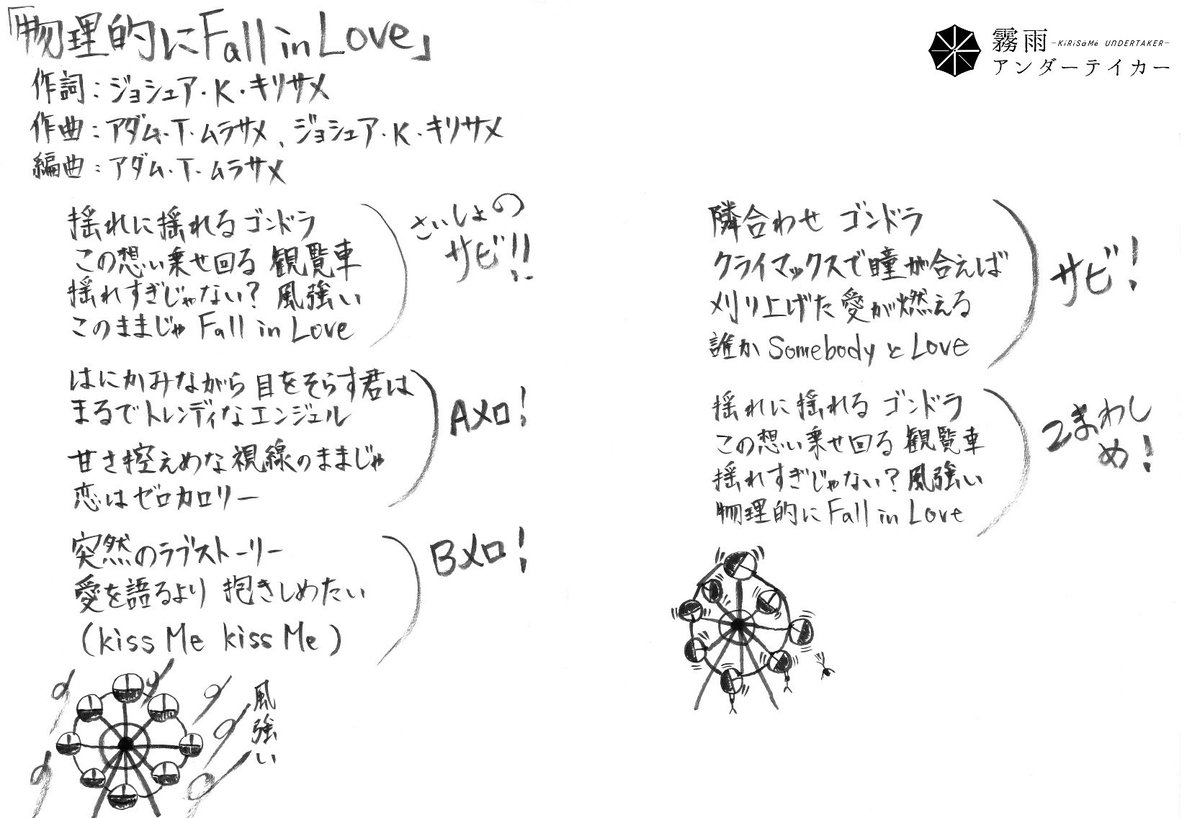 「物理的にFall in Love」
作詞：ジョシュア・K・キリサメ
作曲：アダム・T・ムラサメ、ジョシュア・K・キリサメ
編曲：アダム・T・ムラサメ
揺れに揺れるゴンドラ
この想い乗せ回る 観覧車
揺れすぎじゃない？ 風強い
このままじゃ Fall in Love
さいしょの
サビ!!
はにかみながら 目をそらす君は
まるでトレンディなエンジェル
甘さ控えめな視線のままじゃ
恋はゼロカロリー
Aメロ!
突然のラブストーリー
愛を語るより 抱きしめたい
(kiss Me kiss Me)
Bメロ!
風強い
霧雨 -KiRiSaMe UNDERTAKER-
アンダーテイカー
隣合わせ ゴンドラ
クライマックスで瞳が合えば
刈り上げた愛が燃える
誰か Somebody と Love
サビ!
揺れに揺れる ゴンドラ
この想い乗せ回る 観覧車
揺れすぎじゃない？ 風強い
物理的に Fall in Love
2まわし
め!